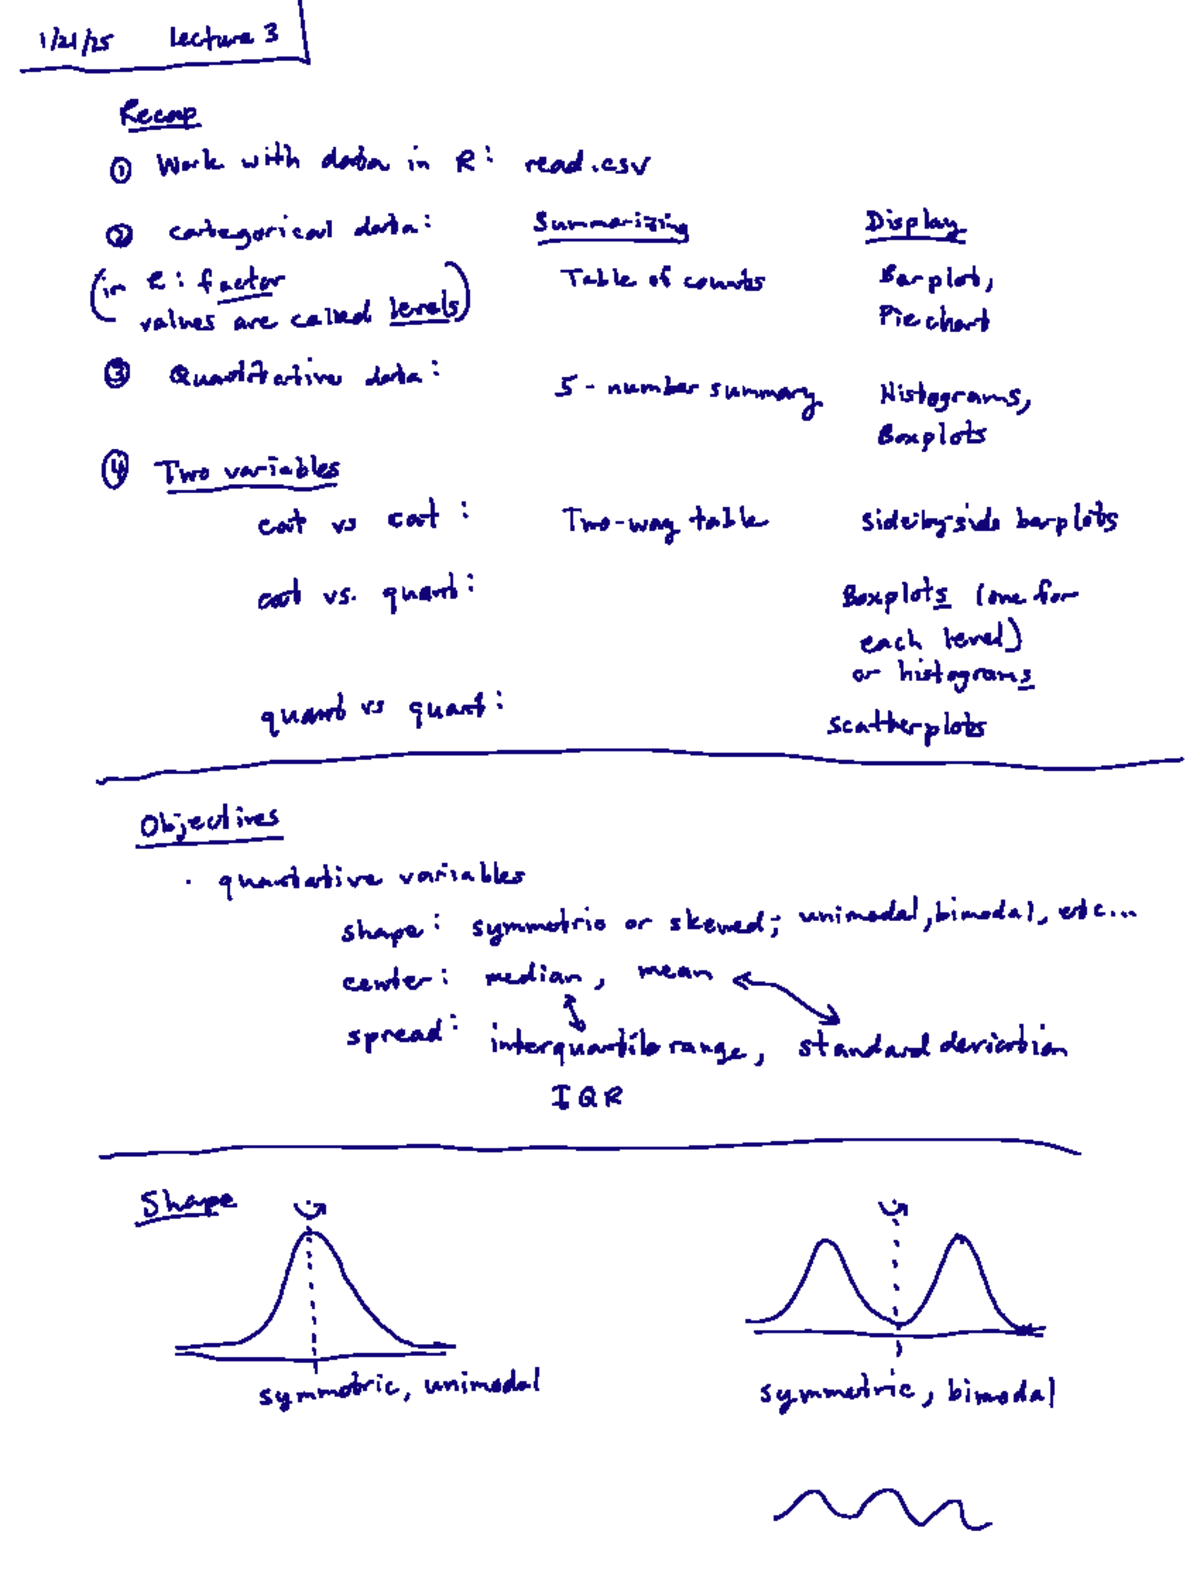 1/21/25 Lecture 3
Recap
① Work with data in R: read.csv
② categorical data: Summarizing Display
(in R: factor Table of counts Barplot,
values are called levels) Pie chart
③ Quantitative data: 5-number summary Histograms,
Boxplots
④ Two variables
cat vs cat: Two-way table side-by-side barplots
cat vs. quant: Boxplots (one for
each level)
or histograms
quant vs quant: scatterplots
Objectives
· quantative variables
shape: symmetric or skewed; unimodal, bimodal, etc...
center: median, mean
spread: interquartile range, standard deviation
IQR
Shape
symmetric, unimodal symmetric, bimodal